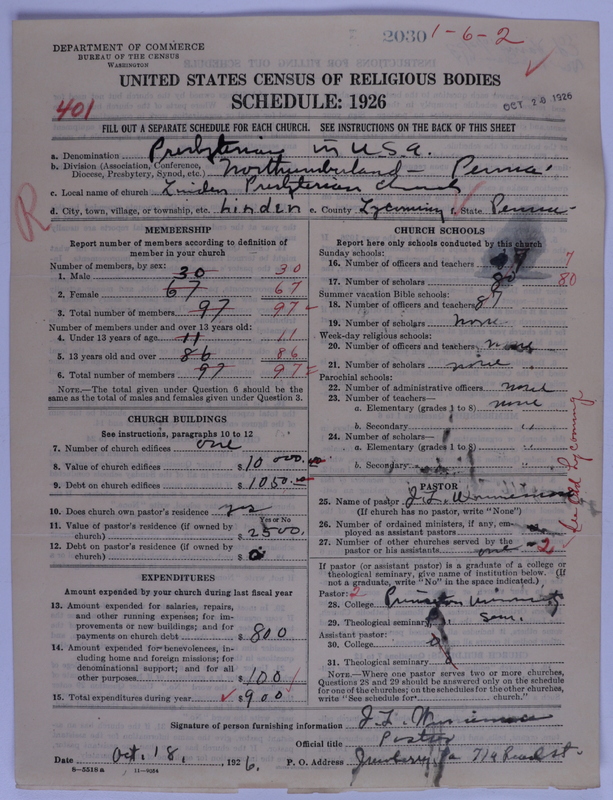 2030 1-6-2
DEPARTMENT OF COMMERCE
BUREAU OF THE CENSUS
WASHINGTON
UNITED STATES CENSUS OF RELIGIOUS BODIES
401
SCHEDULE: 1926
OCT 20 1926
FILL OUT A SEPARATE SCHEDULE FOR EACH CHURCH. SEE INSTRUCTIONS ON THE BACK OF THIS SHEET
a. Denomination Presbyterian in U.S.A.
b. Division (Association, Conference, Diocese, Presbytery, Synod, etc.) Northumberland - Penna.
c. Local name of church Linden Presbyterian Church
d. City, town, village, or township, etc. Linden e. County Lycoming f. State Penna-
R
MEMBERSHIP
Report number of members according to definition of
member in your church
Number of members, by sex:
1. Male 30 30
2. Female 67 67
3. Total number of members 97 97
Number of members under and over 13 years old:
4. Under 13 years of age 11 11
5. 13 years old and over 86 86
6. Total number of members 97 97
NOTE.—The total given under Question 6 should be the
same as the total of males and females given under Question 3.
CHURCH BUILDINGS
See instructions, paragraphs 10 to 12
7. Number of church edifices one
8. Value of church edifices $10 000.00
9. Debt on church edifices $1050.00
10. Does church own pastor's residence? yes
Yes or No
11. Value of pastor's residence (if owned by
church) $2500.
12. Debt on pastor's residence (if owned by
church) $0
EXPENDITURES
Amount expended by your church during last fiscal year
13. Amount expended for salaries, repairs,
and other running expenses; for im-
provements or new buildings; and for
payments on church debt $800
14. Amount expended for benevolences, in-
cluding home and foreign missions; for
denominational support; and for all
other purposes $100
15. Total expenditures during year $900
CHURCH SCHOOLS
Report here only schools conducted by this church
Sunday schools:
16. Number of officers and teachers 7
17. Number of scholars 80 80
Summer vacation Bible schools:
18. Number of officers and teachers 87
19. Number of scholars none
Week-day religious schools:
20. Number of officers and teachers none
21. Number of scholars none
Parochial schools:
22. Number of administrative officers none
23. Number of teachers—
a. Elementary (grades 1 to 8) none
b. Secondary
24. Number of scholars—
a. Elementary (grades 1 to 8)
b. Secondary
PASTOR
25. Name of pastor J. L.
(If church has no pastor, write "None")
26. Number of ordained ministers, if any, em-
ployed as assistant pastors
27. Number of other churches served by the
pastor or his assistants one 2
Lycoming
If pastor (or assistant pastor) is a graduate of a college or
theological seminary, give name of institution below. (If
not a graduate, write "No" in the space indicated.)
Pastor: 2
28. College Princeton University
29. Theological seminary sem.
Assistant pastor:
30. College 0
31. Theological seminary 0
NOTE.—Where one pastor serves two or more churches,
Questions 28 and 29 should be answered only on the schedule
for one of the churches; on the schedules for the other churches,
write "See schedule for church."
Signature of person furnishing information J. L.
Official title Pastor
Date Oct. 18, 1926. P. O. Address Newberry, Pa
8-5518 a 11-9054